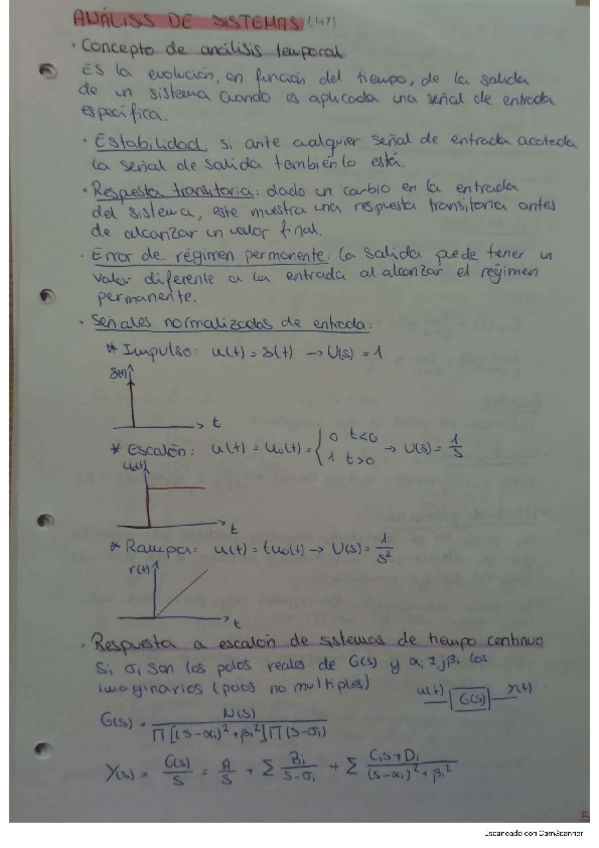 ANÁLISIS DE SISTEMAS (4º)
· Concepto de análisis temporal
Es la evolución, en función del tiempo, de la salida
de un sistema cuando es aplicada una señal de entrada
específica.
· Estabilidad: si ante cualquier señal de entrada acotada
la señal de salida también lo está.
· Respuesta transitoria: dado un cambio en la entrada
del sistema, este muestra una respuesta transitoria antes
de alcanzar un valor final.
· Error de régimen permanente: la salida puede tener un
valor diferente a la entrada al alcanzar el régimen
permanente.
· Señales normalizadas de entrada:
* Impulso: u(t) = δ(t) → U(s) = 1
δ(t)
t
* Escalón: u(t) = u₀(t) = { 0 t<0 1 t>0 → U(s) = 1/s
u₀(t)
t
* Rampa: u(t) = t u₀(t) → U(s) = 1/s²
r(t)
t
· Respuesta a escalón de sistemas de tiempo continuo
Si σi son los polos reales de G(s) y αi ± jβi los
imaginarios (polos no multiples)
u(t) G(s) y(t)
G(s) = N(s) / ∏[(s-αi)²+βi²]∏(s-σi)
Y(s) = G(s)/s = A/s + Σ Bi/(s-σi) + Σ (Cis+Di)/((s-αi)²+βi²)
5
Escaneado con CamScanner